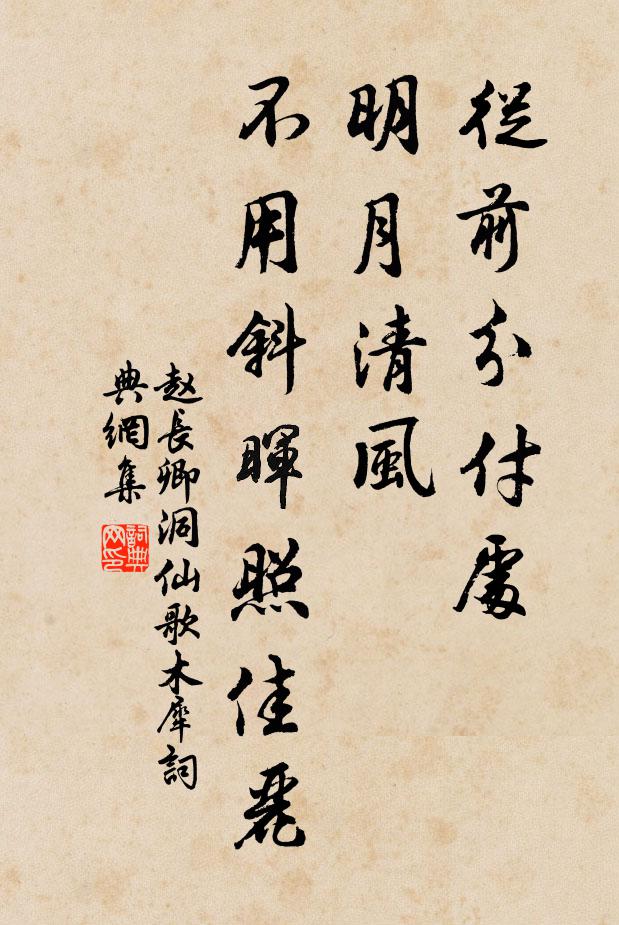 從前分付處
明月清風
不用斜暉照佳麗
赵長卿洞仙歌木犀詞
典網集
詞典
网印